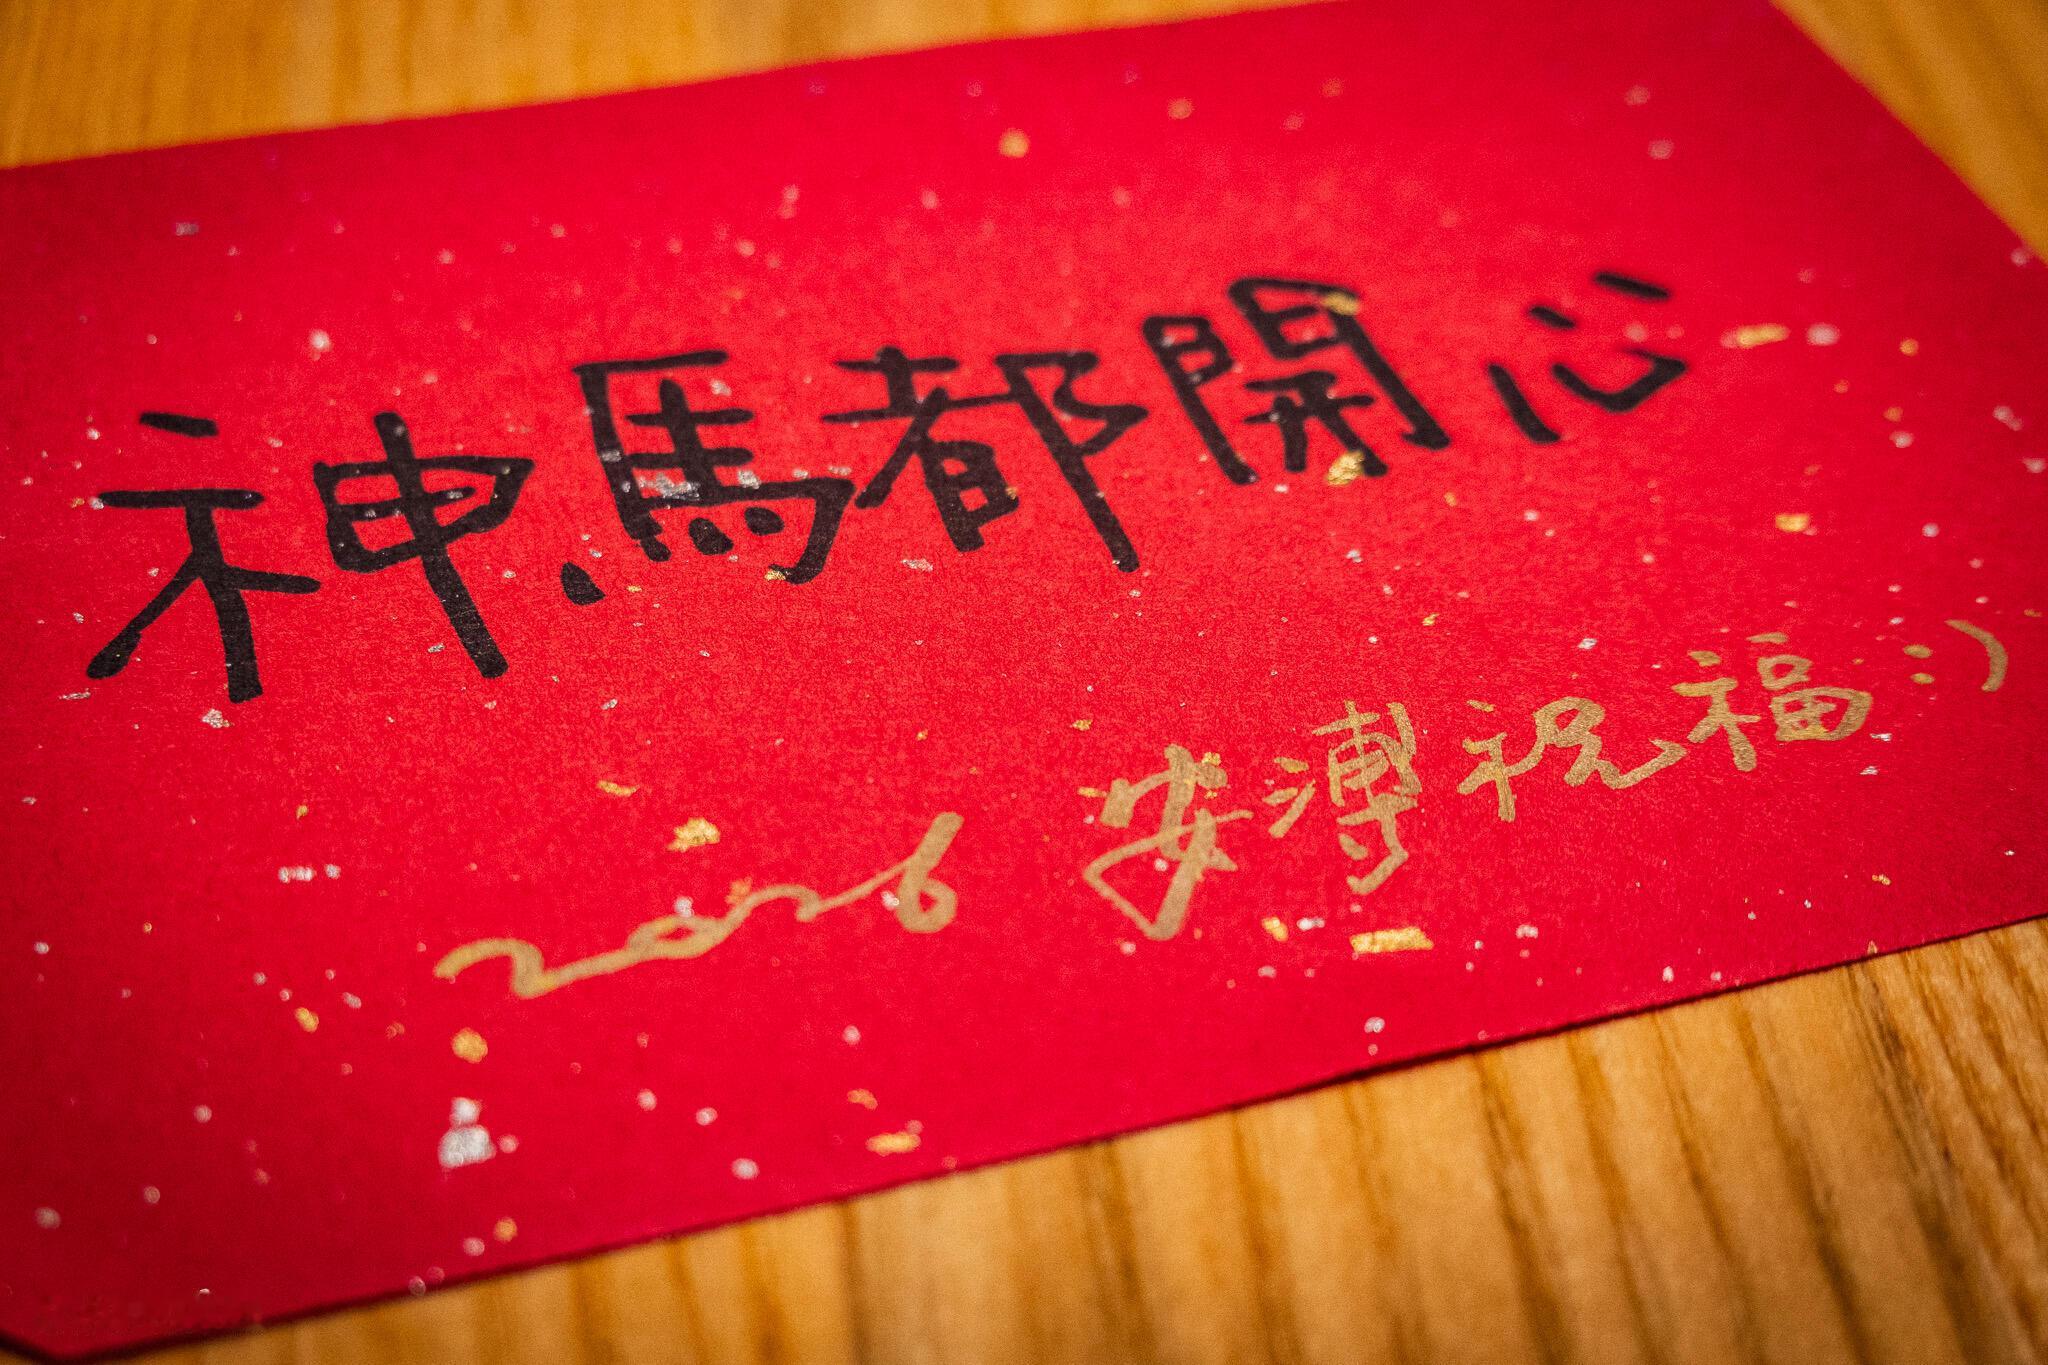 神馬都開心
2026 安溥祝福:)